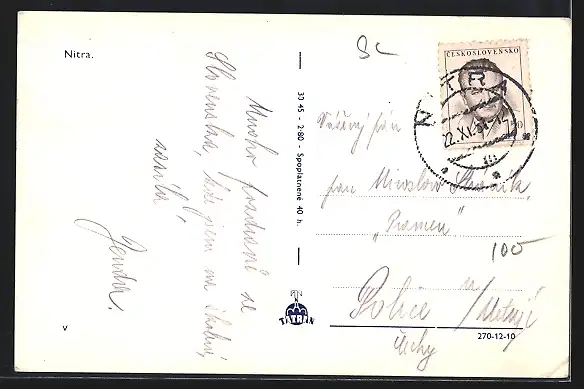 Nitra.
Mnoho pozdravů ze
Slovenska, kde jsem na školení,
zasílá
Jenda.
V
30 45 - 2/80 - Spoplatnené 40 h.
TATRAN
ČESKOSLOVENSKO
NITRA
22.XI.51-12
Vážený pán
pan Miroslav
"Pramen"
Police n/Metují
Čechy
100
270-12-10